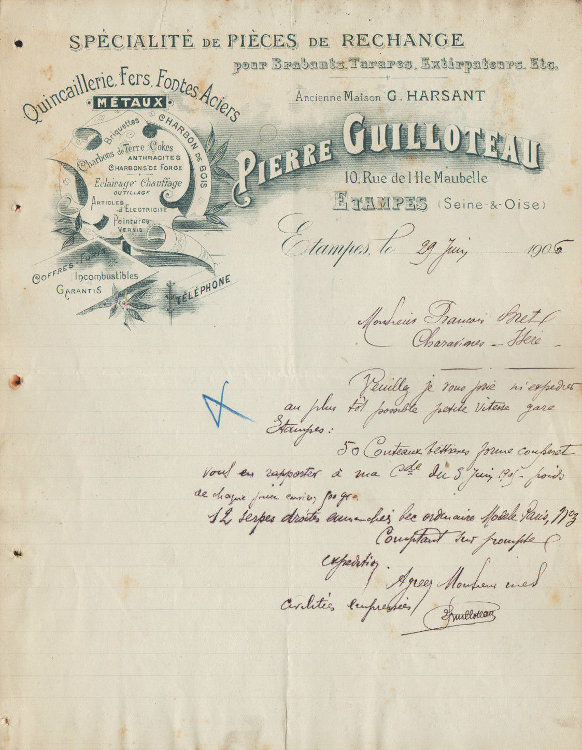 SPÉCIALITÉ DE PIÈCES DE RECHANGE
pour Brabants, Tarares, Extirpateurs, Etc.
Quincaillerie, Fers, Fontes, Aciers
MÉTAUX
Briquettes
CHARBON DE BOIS
Charbons de Terre Cokes
ANTHRACITES
CHARBONS DE FORGE
Eclairage Chauffage
OUTILLAGE
ARTICLES
d'ELECTRICITÉ
Peintures
VERNIS
COFFRES-FORTS
Incombustibles
GARANTIS
TÉLÉPHONE
Ancienne Maison G. HARSANT
PIERRE GUILLOTEAU
10, Rue de l'Ile Maubelle
ETAMPES (Seine-&-Oise)
Etampes, le 29 Juin 1905
Monsieur Francois
Charavines - Isere
Veuillez je vous prie m'expedier
au plus tôt possible petite vitesse gare
Etampes:
50 Couteaux betteraves forme
vous en rapporter à ma Cde du 5 Juin 1905 poids
de chaque
12 serpes droites emmanchées bec ordinaire Modele Paris, No 3
Comptant sur prompte
expedition
Agreez Monsieur mes
civilités empressées
PGuilloteau